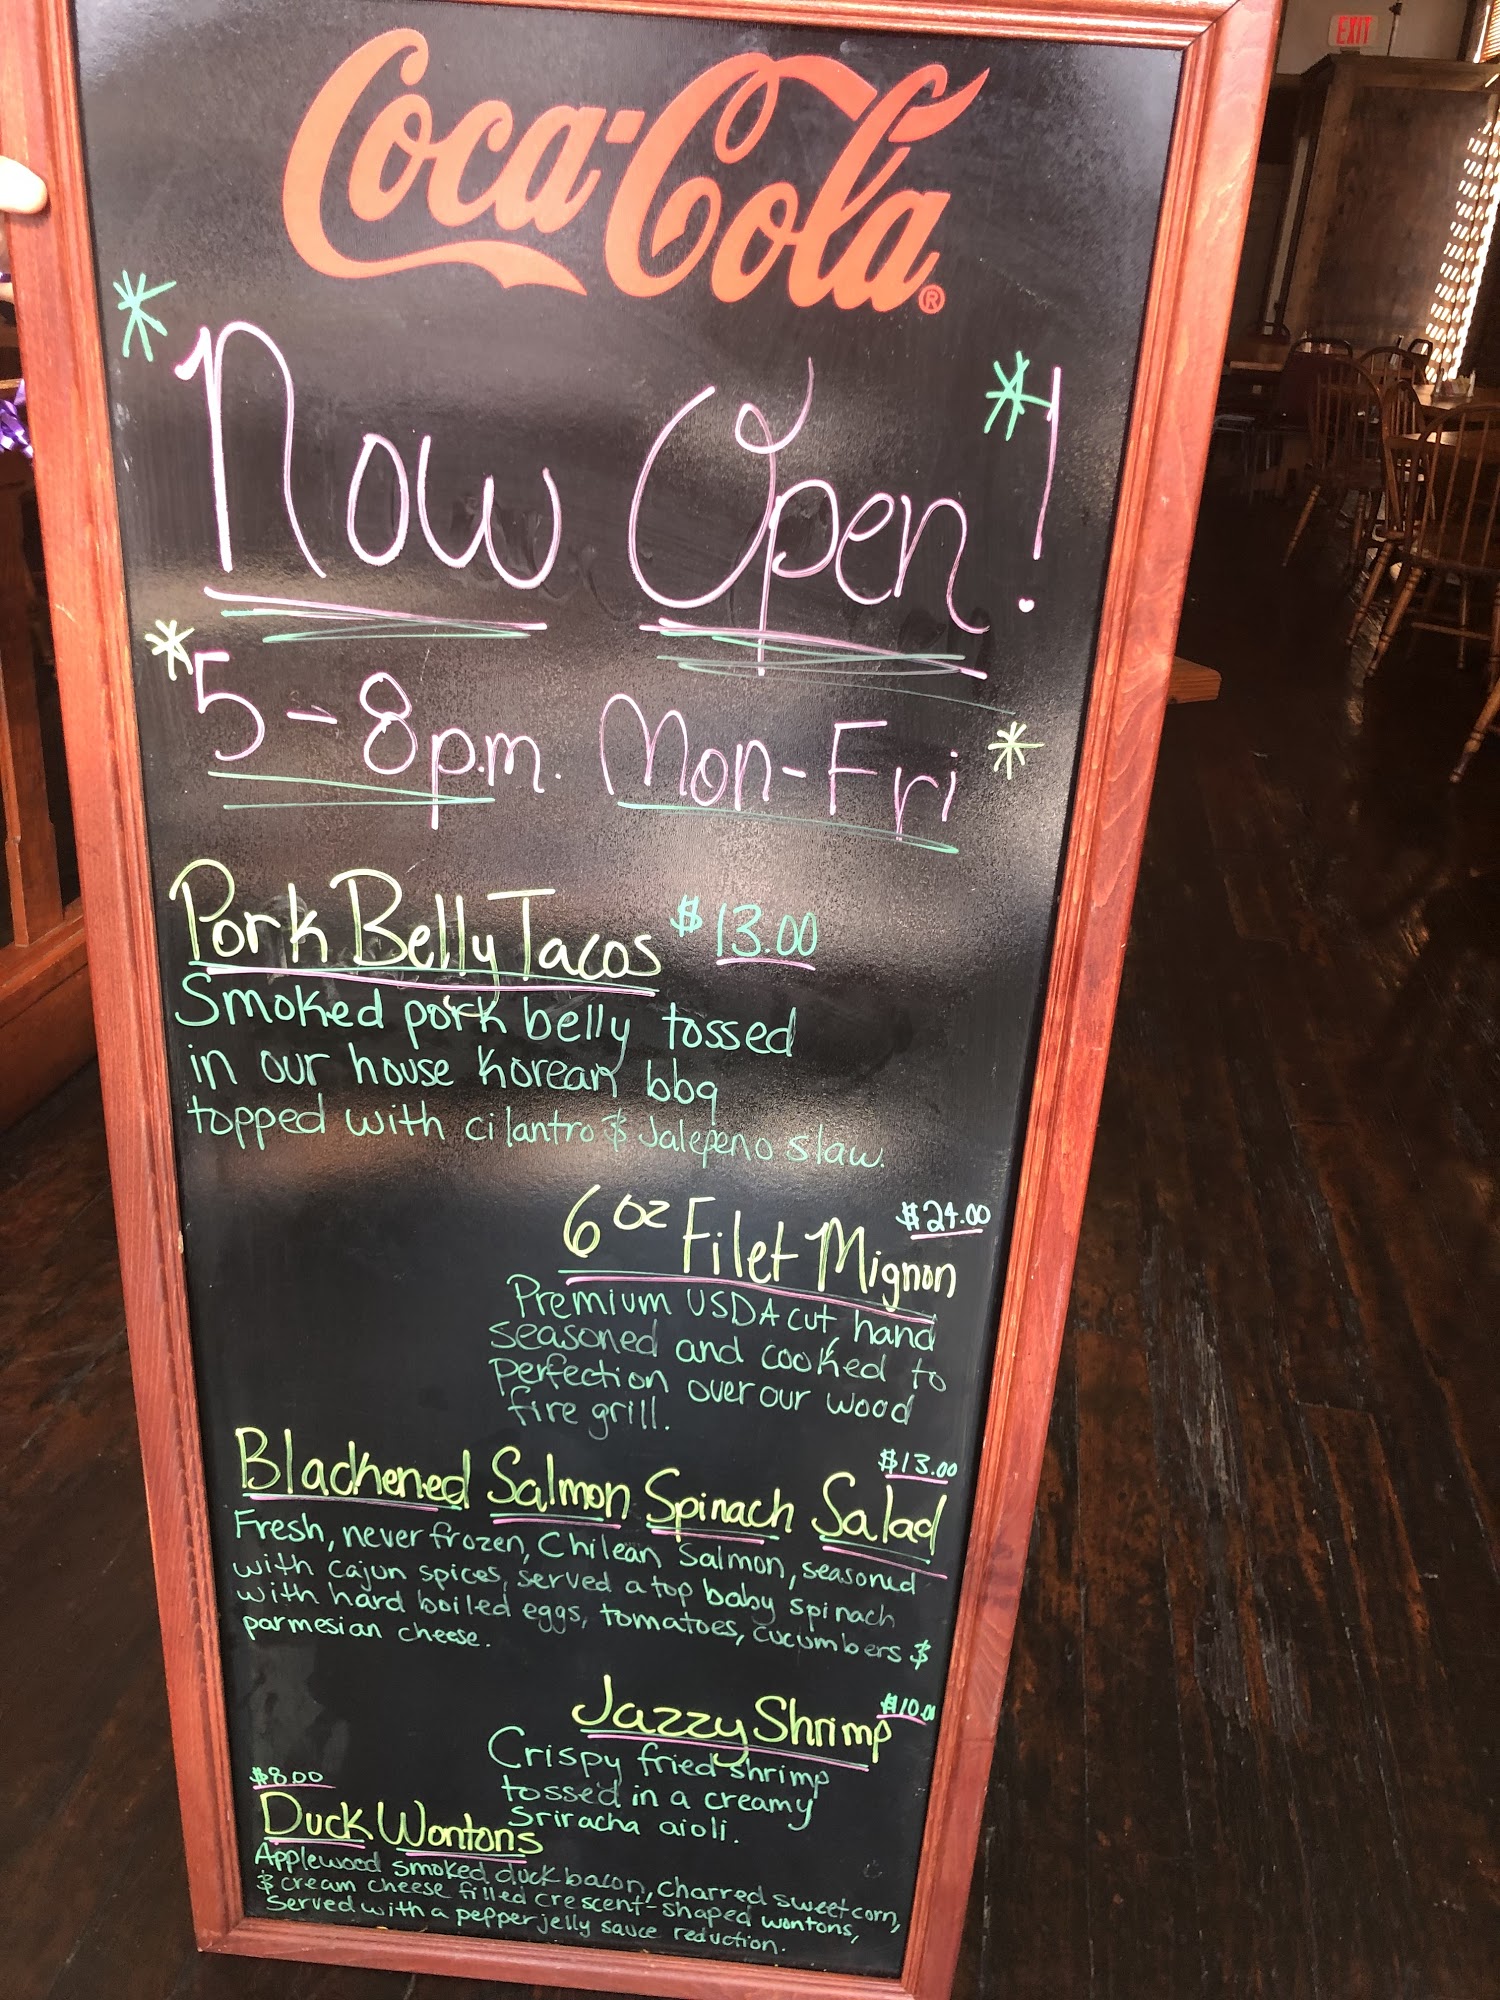 EXIT
Coca-Cola®
*Now Open*!
*5-8p.m. Mon-Fri*
Pork Belly Tacos $13.00
Smoked pork belly tossed
in our house Korean bbq
topped with cilantro & Jalepeno slaw.
$24.00
6oz Filet Mignon
Premium USDA cut, hand
seasoned and cooked to
perfection over our wood
fire grill.
$13.00
Blackened Salmon Spinach Salad
Fresh, never frozen, Chilean Salmon, seasoned
with Cajun spices, served atop baby spinach
with hard boiled eggs, tomatoes, cucumbers &
parmesian cheese.
$10.00
Jazzy Shrimp
Crispy fried shrimp
tossed in a creamy
Sriracha aioli.
$8.00
Duck Wontons
Applewood smoked duck bacon, Charred sweet corn,
& cream cheese filled crescent-shaped wontons,
Served with a pepper jelly sauce reduction.